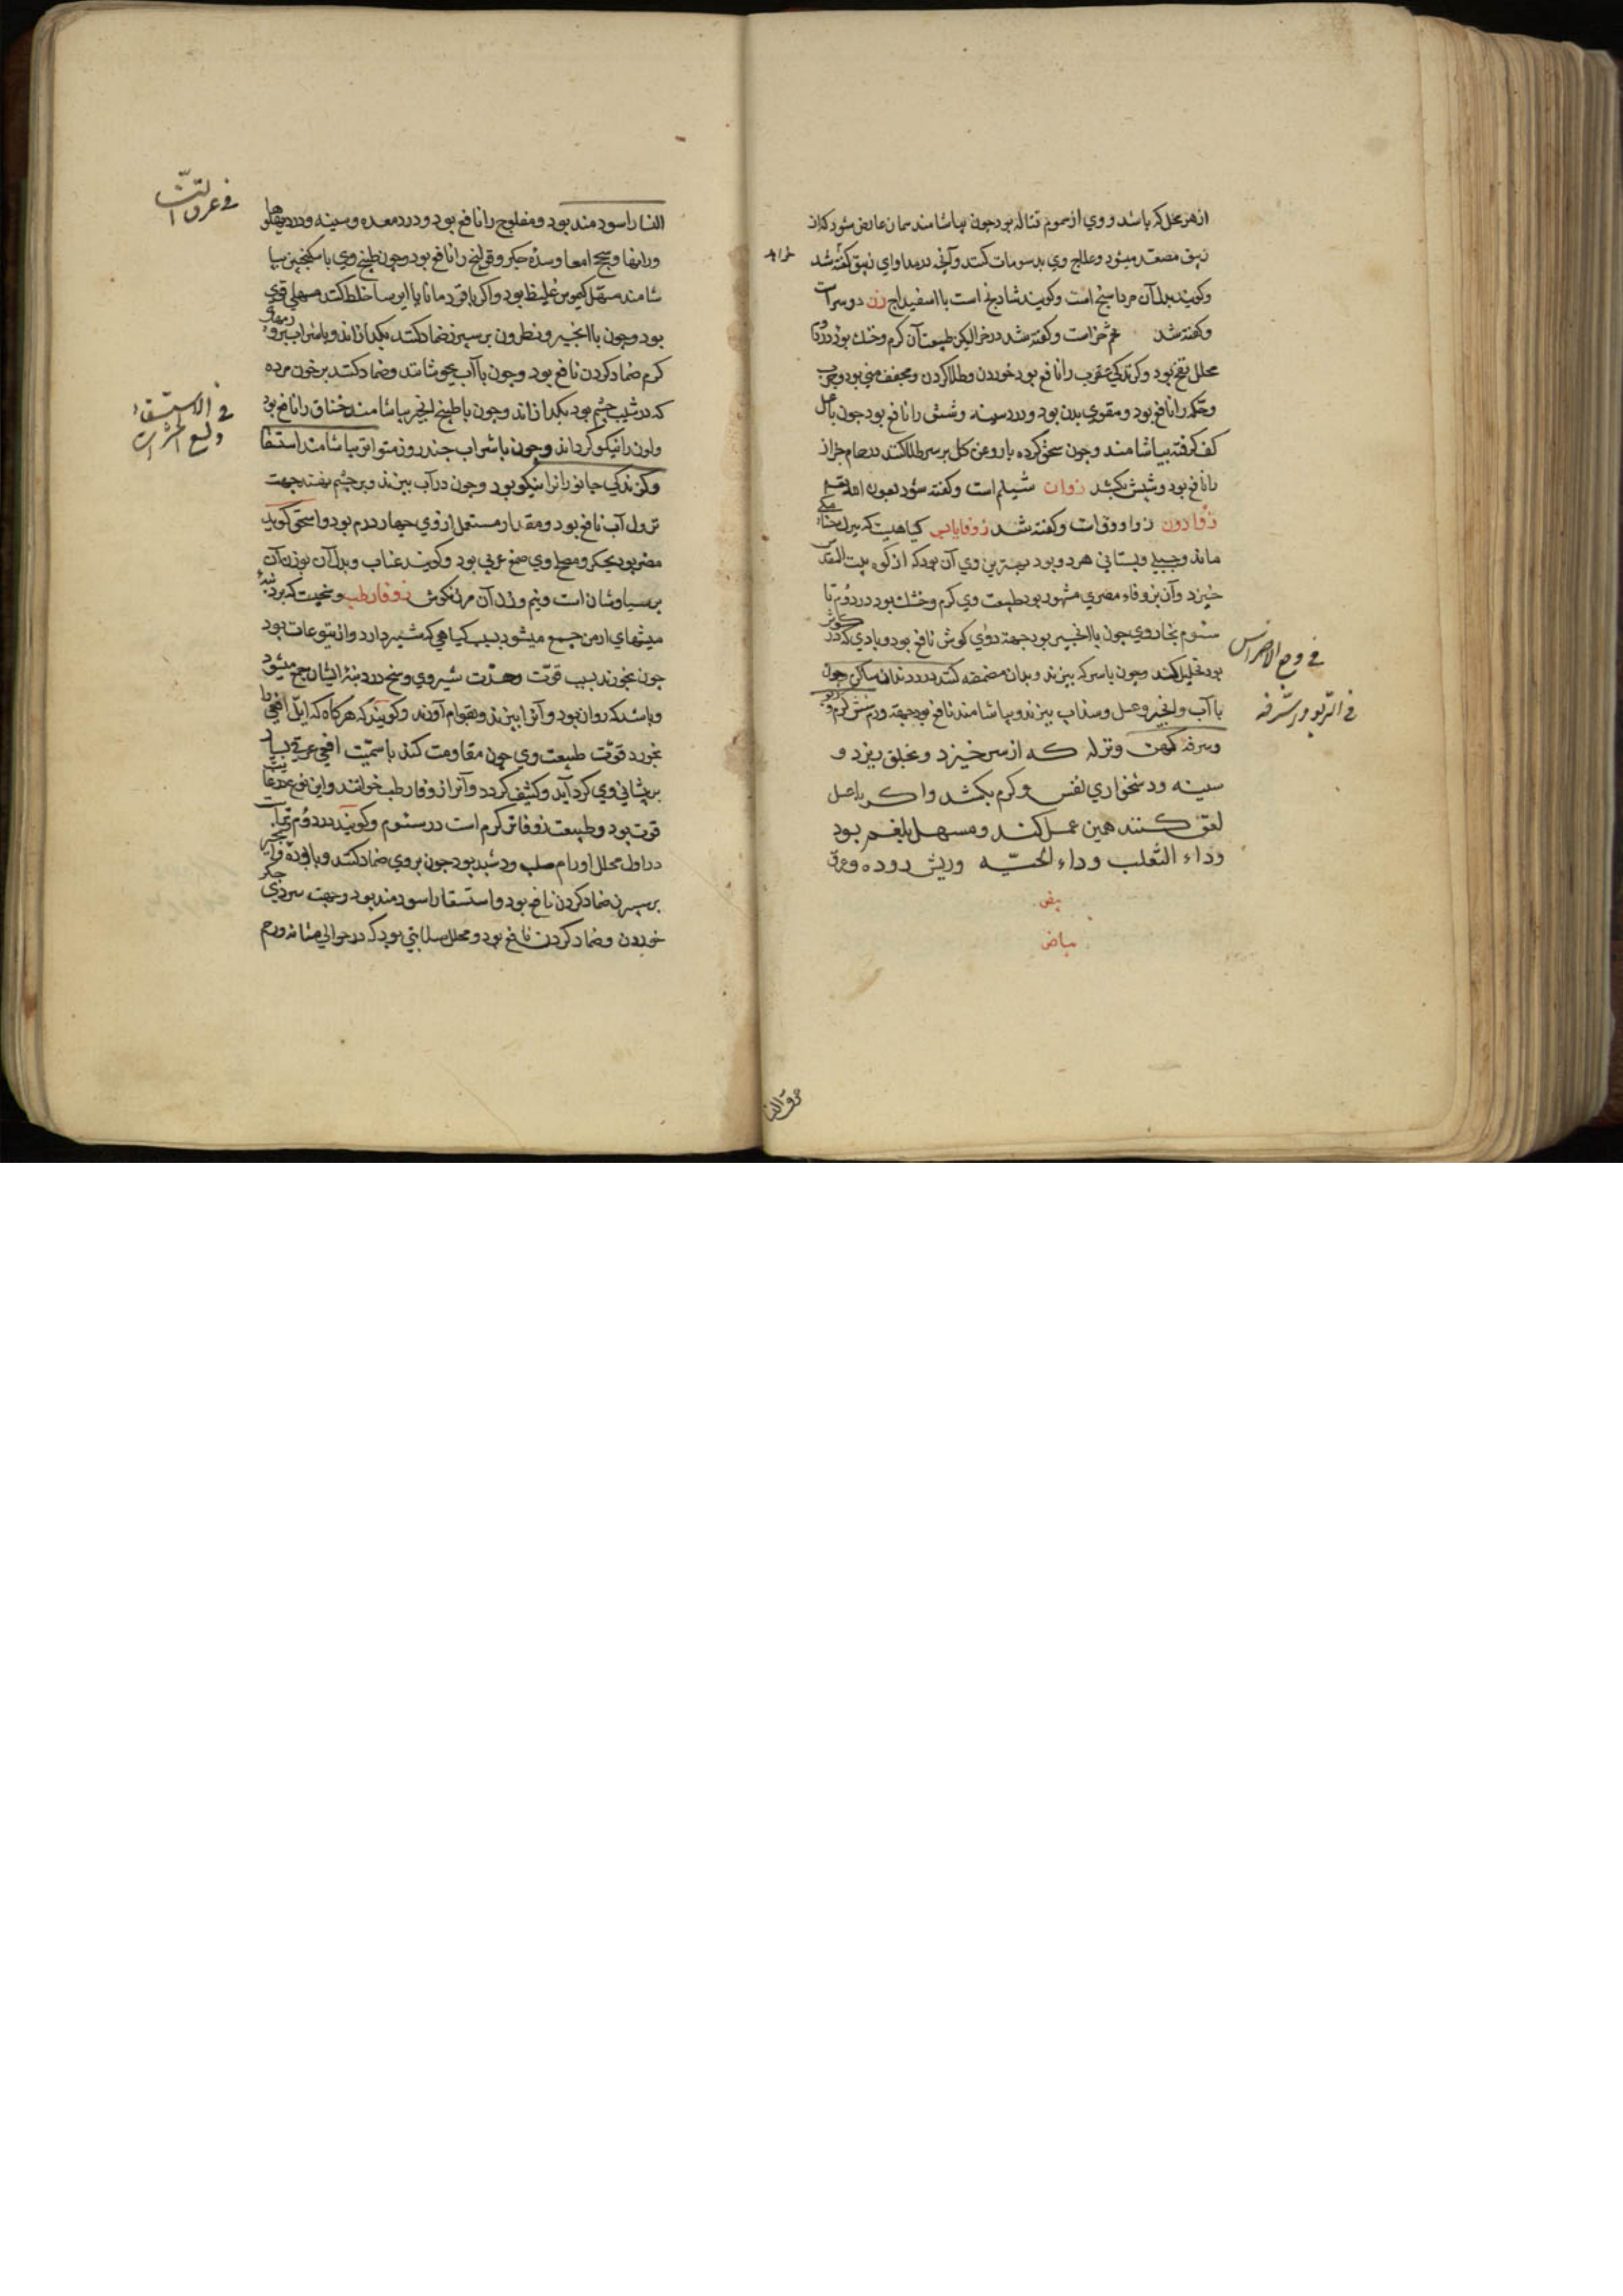 از هر محل که باشد و وی از سموم قتاله بود چون بیاشامند همان عارض شود که از
زیبق مصعد میشود و علاج وی بدسومات کنند و آنچه در مداوای زیبق گفته شد
وکویند بدل آن مرداسنج است وکویند شادنج است با اسفیداج زن دوسراست
وکفته شد تخم خزاست وکفته شد در خرالیکن طبیعت آن کرم وخشک بود
محلل نفخ بود وکزندکی عقرب را نافع بود خوردن وطلا کردن ومجفف منی بود وجرب
وحکه را نافع بود ومقوی بدن بود ودرد سینه وشش را نافع بود چون با عسل
کف کرفته بیاشامند وچون سحق کرده با روغن کل بر سر طلا کنند در حمام حزاز
را نافع بود وشپش بکشد زوان شیلم است وکفته شود بعون الله تعالی
زوادون زرادوق است وکفته شد زوفا یابس کیاهیست که
ماند وجبلی وبستانی هر دو بود بهترین وی آن بود که از کوه بیت المقدس
خیزد وآن بزوفاء مصری مشهور بود طبیعت وی کرم وخشک بود در دوم تا
سئوم بخار وی چون با انجیر بود جهة دوی کوش نافع بود وبادی که در کوش
بود تحلیل کند وچون با سرکه بپزند وبدان مضمضه کنند درد دندان ساکن چون
فی وجع الاضراس
با آب وانجیر وعسل وسذاب بپزند وبیاشامند نافع بود جهة ورم شش کرم وربو
فی الربو والسرفه
وسرفه کهن ونزله که از سر خیزد وبحلق ریزد و
سینه ودشخواری نفس وکرم بکشد واکر با عسل
لعق کنند همین عمل کند ومسهل بلغم بود
وداء الثعلب وداء الحیه وریش روده وعرق
بیاض
عرق النسا
النسا را سودمند بود ومفلوج را نافع بود ودرد معده وسینه ودرد پهلوها
فی عرق النساء
ورانها وسحج امعا وسده جکر وقولنج را نافع بود وچون طبیخ وی با سکنجبین بیا
شامند مسهل کیموس غلیظ بود واکر با قردمانا یا ایرسا خلط کنند مسهلی قوی
بود وچون با انجیر ونطرون بر سپرز ضماد کنند بکدازاند وبا شراب بر ورمهای
کرم ضماد کردن نافع بود وچون با آب بجوشانند وضماد کنند بر خون مرده
که در شیب چشم بود بکدازاند وچون با طبیخ انجیر بیاشامند خناق را نافع بود
فی الاستسقاء
ولسع الحشرات
ولون را نیکو کرداند وچون با شراب چند روز متواتر بیاشامند استسقا
وکزندکی جانوران را نیکو بود وچون در آب بپزند وبر چشم نهند جهت
نزول آب نافع بود ومقدار مستعمل از وی چهار درم بود واسحق کوید
مضر بود بجکر ومصلح وی صمغ عربی بود وکویند عناب وبدل آن بوزن آن
برسیاوشان است ونیم وزن آن مرزنکوش زوفا رطب وسخیست که بر دنبه
میشهای ارمن جمع میشود بسبب کیاهی که شیر دارد واز یتوعات بود
چون بخورند بسبب قوت وحدت شیر وی وسخ در دنبه ایشان جمع میشود
وباشد که روان بود وآنرا بپزند وبقوام آورند وکویند که هرکاه که ایل افعی را
بخورد قوت طبیعت وی چون مقاومت کند با سمیت افعی عرق بسیار
بر پشانی وی کرد آید وکثیف کردد وآنرا زوفا رطب خوانند واین نوع
قوت بود وطبیعت زوفا تر کرم است در سئوم وکویند در دوم
در اول محلل اورام صلب ود شبد بود چون بر وی ضماد کنند وبا بوره وانجیر
بر سپرز ضماد کردن نافع بود واستسقا را سودمند بود وجهت سردی جکر
خوردن وضماد کردن نافع بود ومحلل صلابتی بود که در حوالی مثانه ورحم